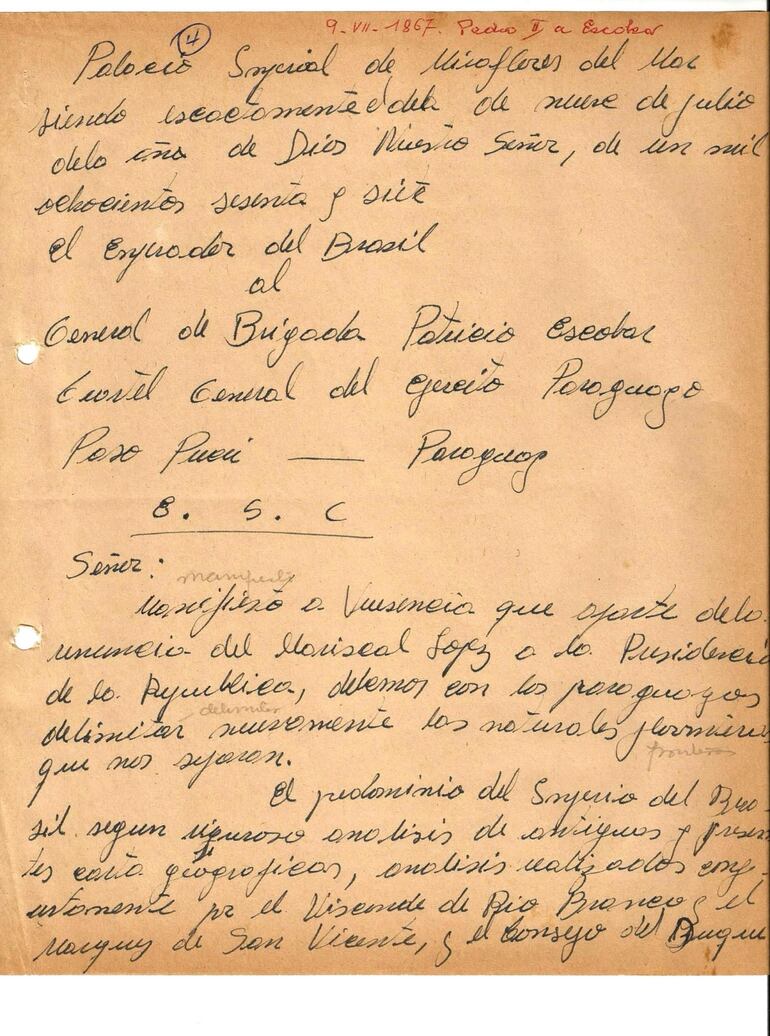 9-VII-1867. Pedro II a Escobar
4
Palacio Imperial de Miraflores del Mar
siendo escactamente el dia de nueve de julio
dela año de Dios Nuestro Señor, de un mil
ochocientos sesenta y siete
El Emperador del Brasil
al
General de Brigada Patricio Escobar
Cuartel General del Ejercito Paraguayo
Paso Pucú — Paraguay
E. S. C
Señor:
manifiesto
Manifiesto a Vuesencia que aparte dela
renuncia del Mariscal Lopez a la Presidencia
de la Republica, debemos con los paraguayos
delimitar
delimitar nuevamente las naturales fronteras
fronteras
que nos separan.
El predominio del Imperio del Bra-
sil segun riguroso analisis de antiguas y presen
tes carta geograficas, analisis realizados conju-
ntamente por el Visconde de Rio Branco y el
Marques de San Vicente, y el Consejo del Duque